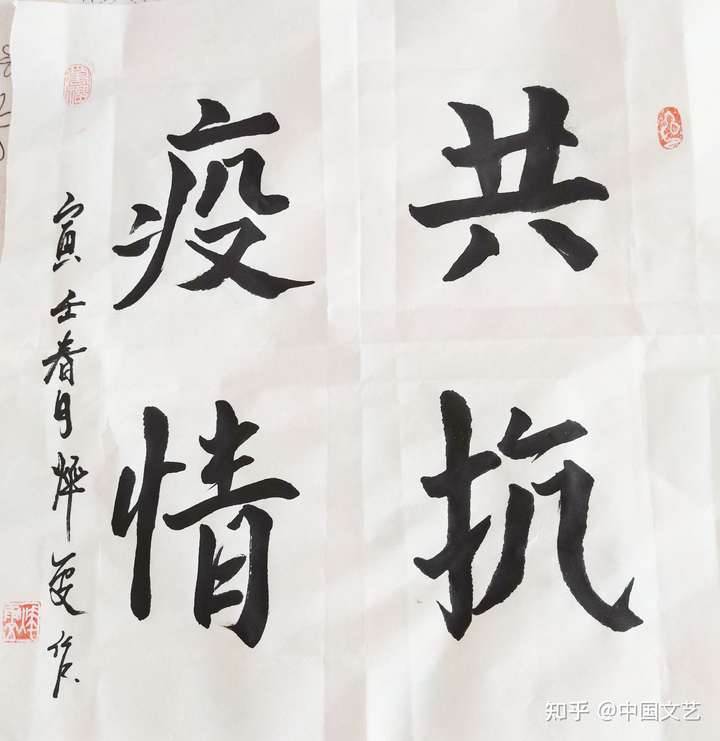 共抗
疫情
寅壬春月作
知乎 @中国文艺